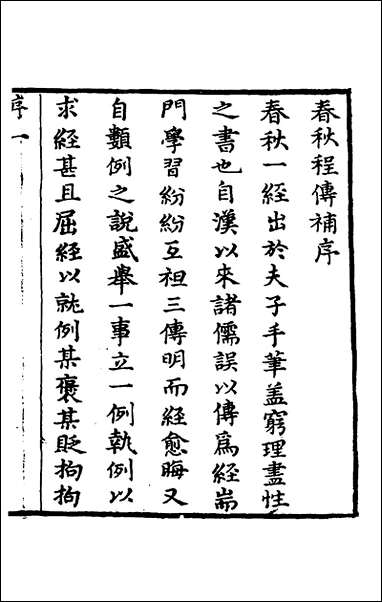 春秋程傳補序
春秋一經出於夫子手筆盖窮理盡性
之書也自漢以來諸儒誤以傳爲經耑
門學習紛紛互祖三傳明而經愈晦又
自類例之說盛舉一事立一例執例以
求經甚且屈經以就例某褒某貶拘拘
序一